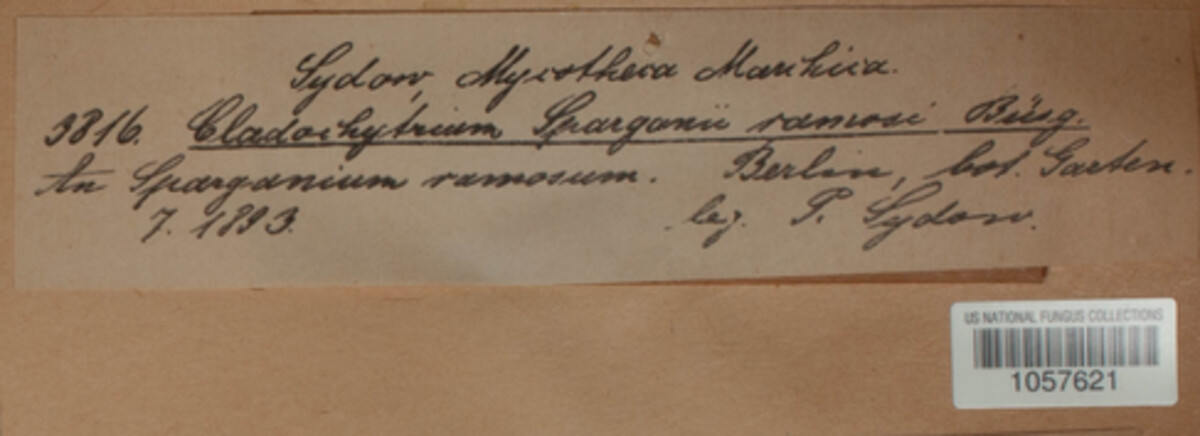 Sydow, Mycotheca Marchica.
3816. Cladochytrium Sparganii ramosi Büsg.
An Sparganium ramosum. Berlin, bot. Garten.
7. 1893. leg. P. Sydow.
US NATIONAL FUNGUS COLLECTIONS
1057621